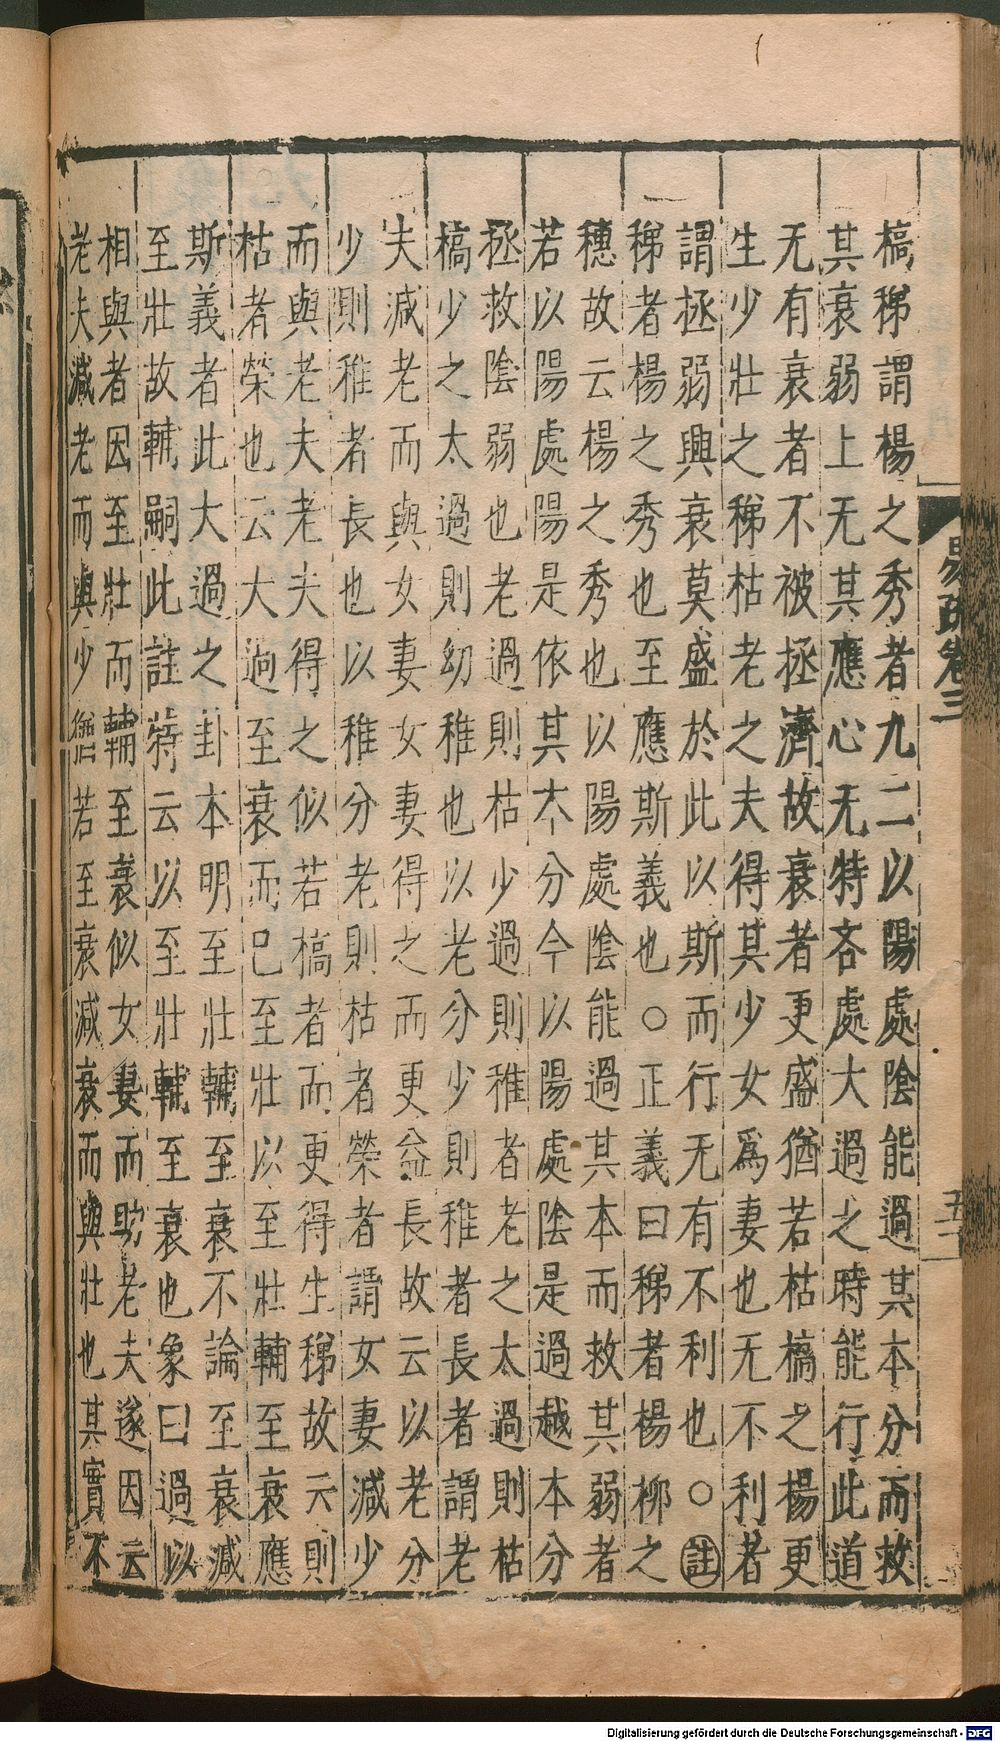 槁稊謂楊之秀者九二以陽處隂能過其本分而救
其衰弱上无其應心无特吝處大過之時能行此道
无有衰者不被拯濟故衰者更盛猶若枯槁之楊更
生少壯之稊枯老之夫得其少女爲妻也无不利者
謂拯弱興衰莫盛於此以斯而行无有不利也○註
稊者楊之秀也至應斯義也○正義曰稊者楊柳之
穗故云楊之秀也以陽處隂能過其本而救其弱者
若以陽處陽是依其本分今以陽處隂是過越本分
拯救隂弱也老過則枯少過則稚者老之太過則枯
槁少之太過則幼稚也以老分少則稚者長者謂老
夫減老而與女妻女妻得之而更益長故云以老分
少則稚者長也以稚分老則枯者榮者謂女妻減少
而與老夫老夫得之似若槁者而更得生稊故云則
枯者榮也云大過至衰而己至壯以至壯輔至衰應
斯義者此大過之卦本明至壯輔至衰不論至衰減
至壯故輔嗣此註特云以至壯輔至衰也象曰過以
相與者因至壯而輔至衰似女妻而助老夫遂因云
老夫減老而與少猶若至衰減衰而與壯也其實不
易疏卷三
Digitalisierung gefördert durch die Deutsche Forschungsgemeinschaft - DFG